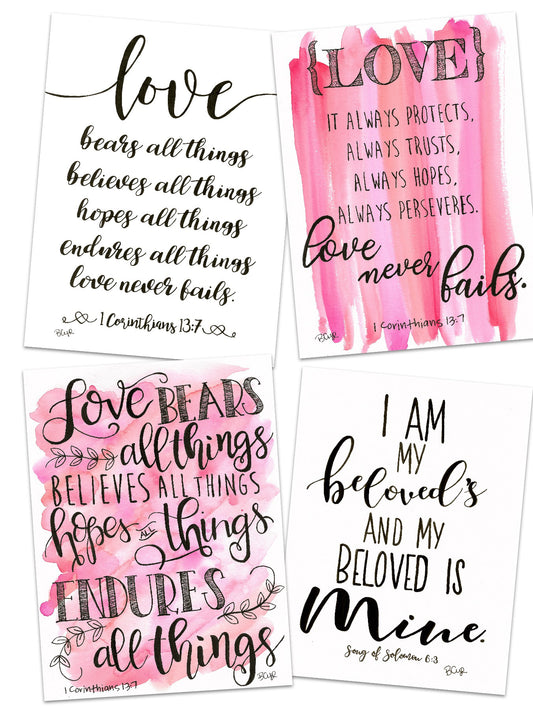 love
bears all things
believes all things
hopes all things
endures all things
love never fails.
1 Corinthians 13:7
BCyR
{LOVE}
IT ALWAYS PROTECTS,
ALWAYS TRUSTS,
ALWAYS HOPES,
ALWAYS PERSEVERES.
love never fails.
1 Corinthians 13:7
BCyR
Love BEARS
all things
BELIEVES ALL THINGS
hopes ALL things
ENDURES
all things
1 Corinthians 13:7
BCyR
I AM
MY
beloved's
AND MY
BELOVED IS
Mine.
Song of Solomon 6:3
BCyR